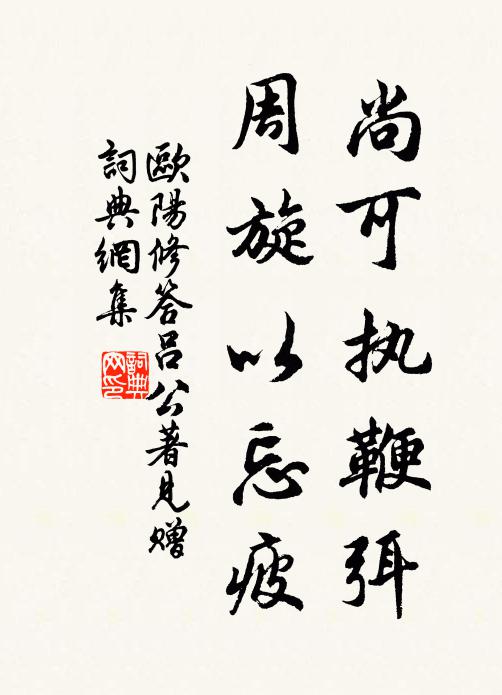 尚可执鞭弭
周旋以忘疲
歐陽修答吕公著見贈
詞典網集
詞典网印